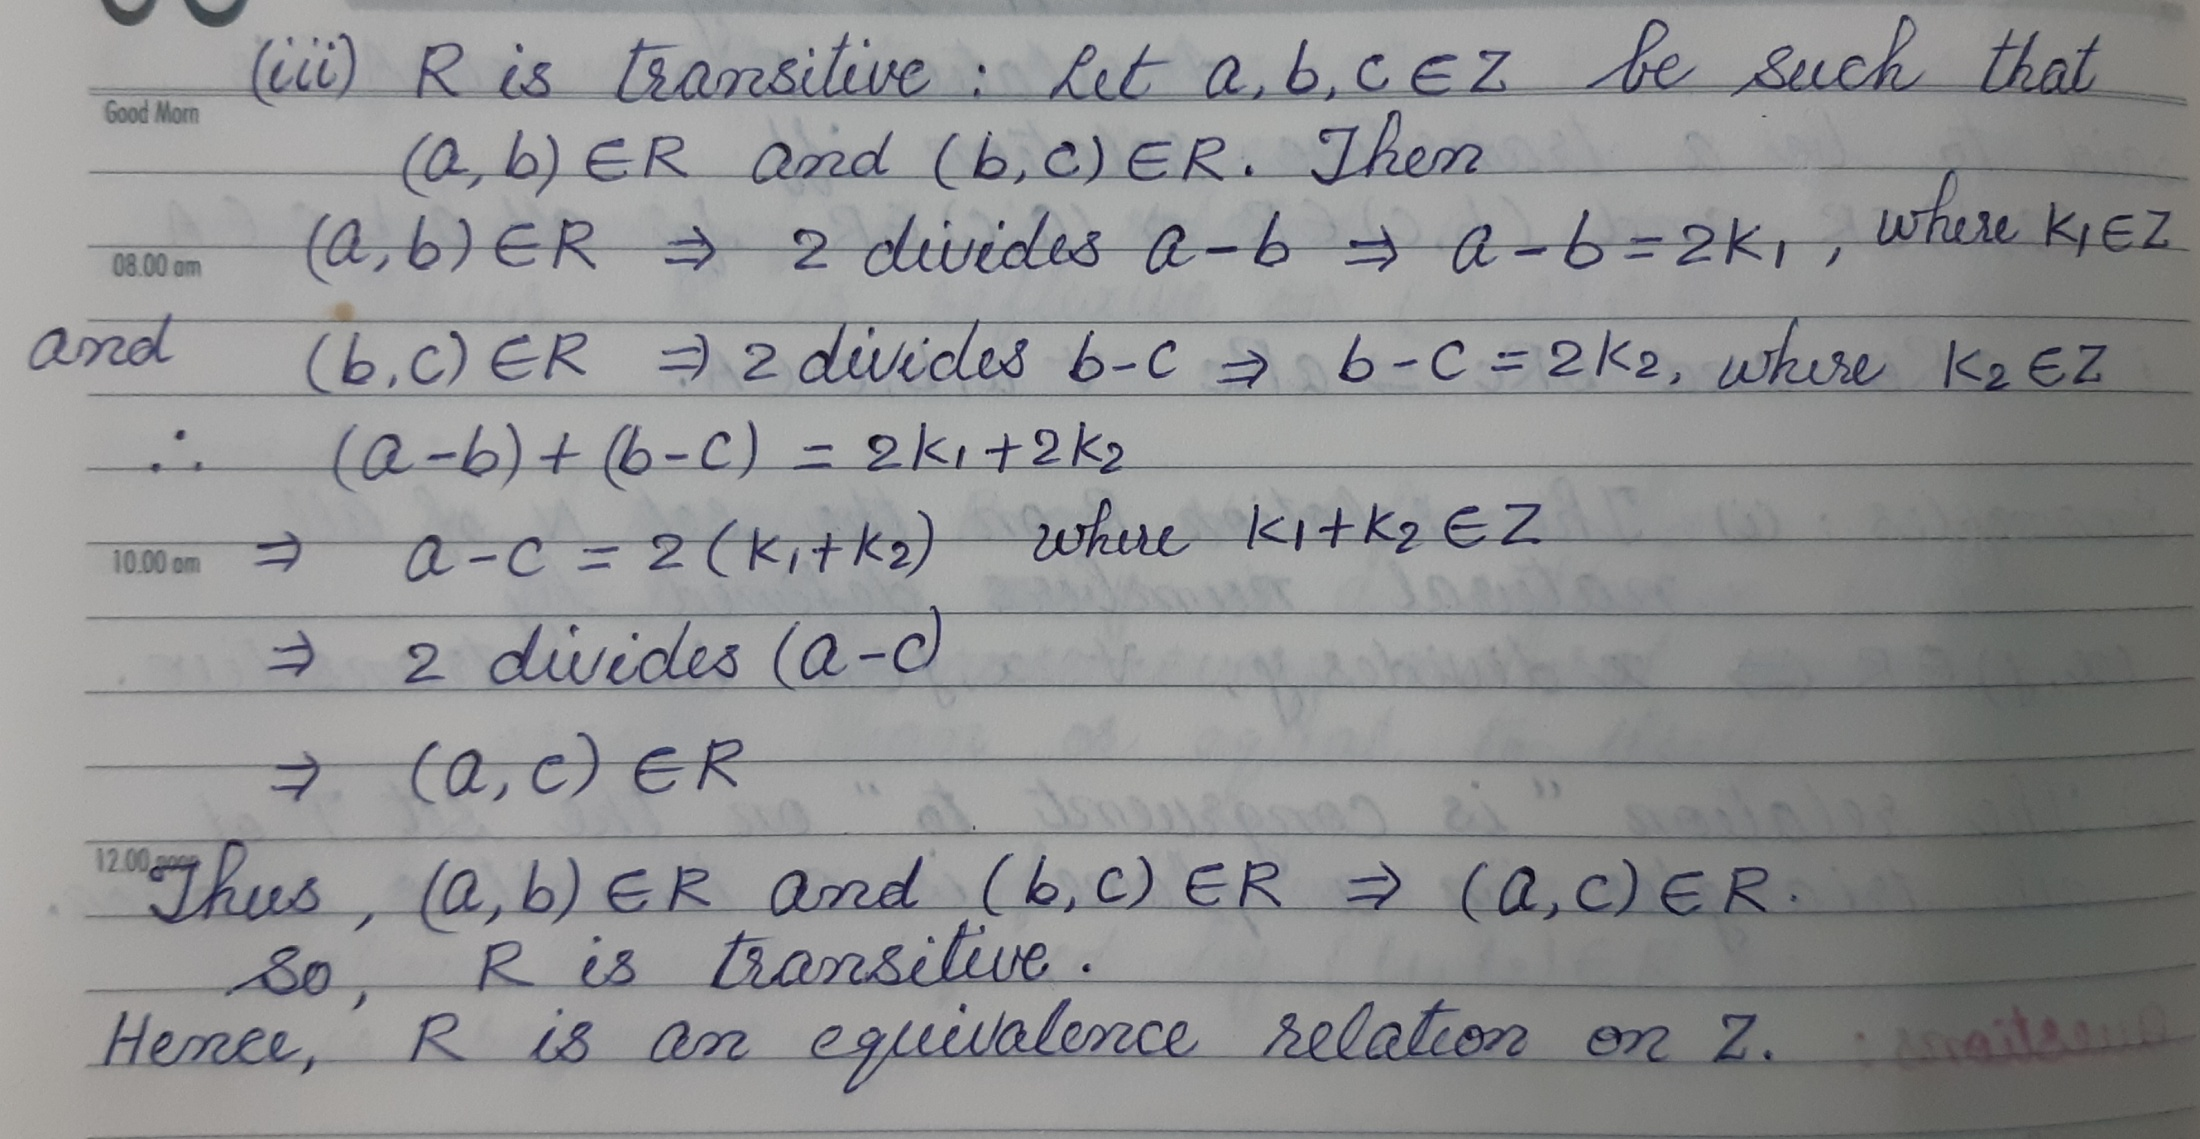 (iii) R is transitive : Let a, b, c ∈ Z be such that
Good Morn
(a, b) ∈ R and (b, c) ∈ R. Then
(a, b) ∈ R ⇒ 2 divides a - b ⇒ a - b = 2K₁, where K₁ ∈ Z
08.00 am
and (b, c) ∈ R ⇒ 2 divides b - c ⇒ b - c = 2K₂, where K₂ ∈ Z
∴ (a - b) + (b - c) = 2K₁ + 2K₂
10.00 am ⇒ a - c = 2(K₁ + K₂) where K₁ + K₂ ∈ Z
⇒ 2 divides (a - c)
⇒ (a, c) ∈ R
12.00 noon
Thus, (a, b) ∈ R and (b, c) ∈ R ⇒ (a, c) ∈ R.
So, R is transitive.
Hence, R is an equivalence relation on Z.